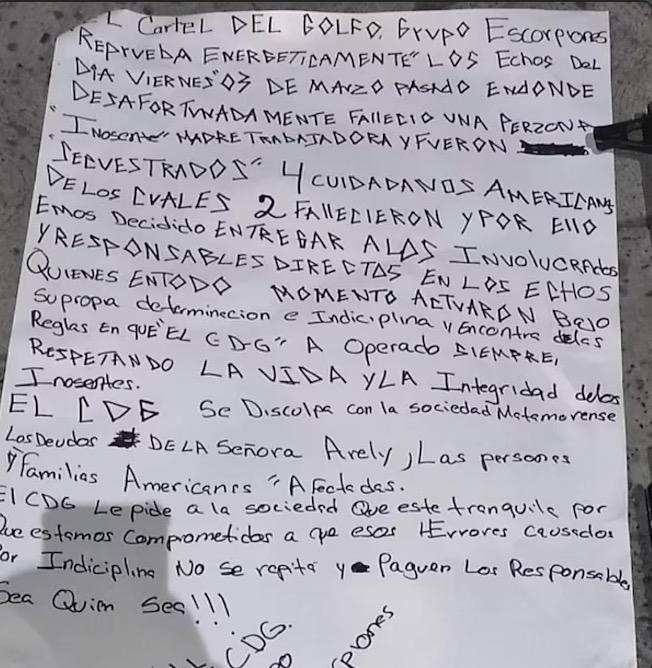 EL Cartel DEL GOLFO. Grupo Escorpiones
REPRUEBA ENERGETICAMENTE" LOS Echos DEL
DIA VIERNES "03 DE MARZO PASADO ENDONDE
DESAFORTUNADAMENTE FALLECIO UNA PERZONA
"INosente" MADRE TRABAJADORA Y FUERON
"SECVESTRADOS" 4 CUIDADANOS AMERICANS
DE LOS CUALES 2 FALLECIERON Y POR EllO
EMOS Decidido ENTREGAR A LOS INVOLUCRAdos
Y RESPONSABLES DIRECTOS EN LOS ECHOS
QUIENES ENTODO MOMENTO ACTUARON BAJO
Su propa determinecion e Indiciplina y Encontra delas
Reglas En QUE "EL CDG" A Operado SIEMPRE,
RESPETANDO LA VIDA Y LA Integridad delos
Inosentes.
EL CDG Se Discolpa con la sociedad Matamorense
Los Deudos DE LA Señora Arely, Las persones
Y Familias Americanes "Afectadas.
El CDG Le pide a la sociedad Que este tranquila por
Que estamos comprometidos a que esos Errores causados
Por Indiciplina No se repita y Paguen Los Responsable
Sea Quien Sea!!!
CDG.